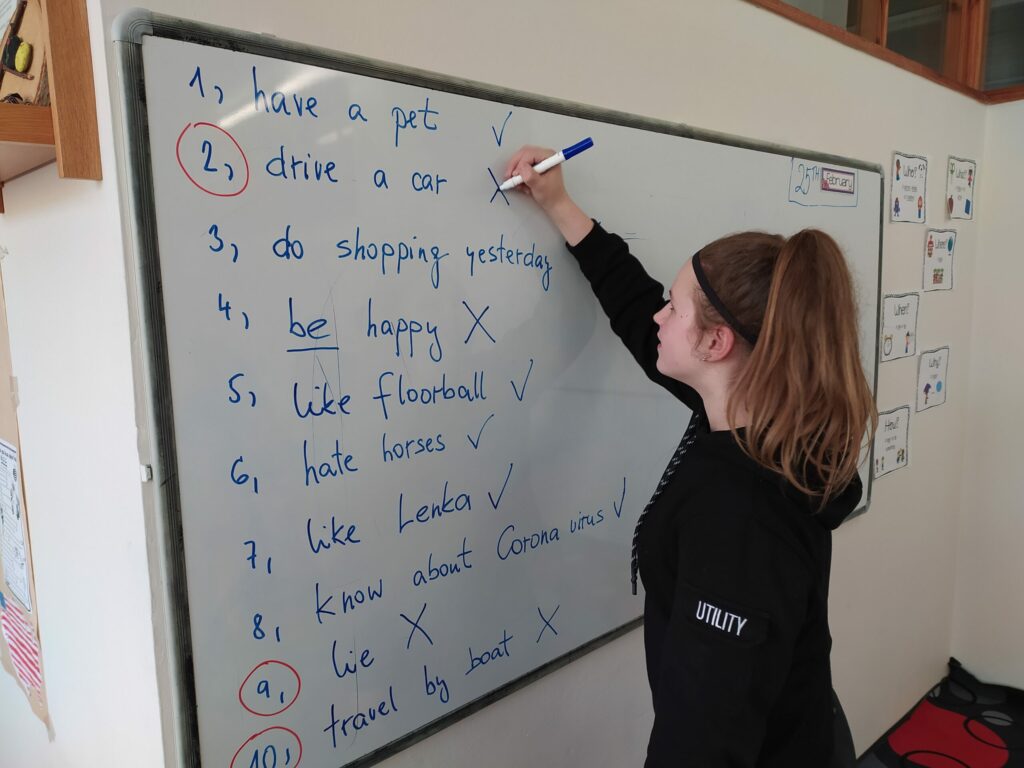 1, have a pet ✓
2, drive a car X
3, do shopping yesterday
4, be happy X
5, like floorball ✓
6, hate horses ✓
7, like Lenka ✓
8, know about Corona virus ✓
9, lie X
10, travel by boat X
25TH February
What?
When?
Why?
How?
UTILITY